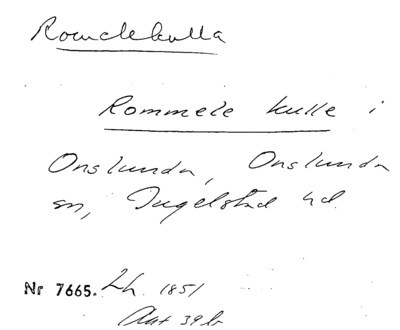 Romelekulla
Rommele kulle i
Onslunda, Onslunda
sn, Ingelstad hd.
Nr 7665. Lh. 1851
Akt 39 b